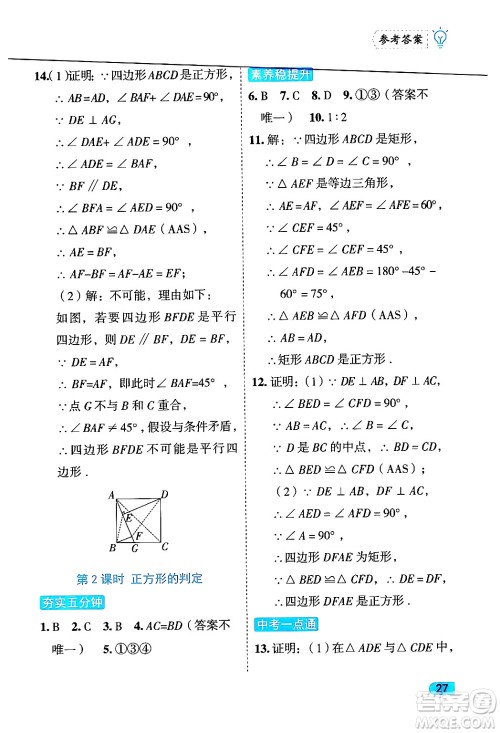 参考答案
14.(1)证明:∵四边形ABCD是正方形,
∴AB=AD,∠BAD=90°,
∵DE⊥AG,
∴∠DAE+∠ADE=90°,
∵∠DAE+∠BAF=90°,
∴∠ADE=∠BAF,
∵BF∥DE,
∴∠BFA=∠AED=90°,
∴△ABF≌△DAE(AAS),
∴AE=BF,
∴AF-BF=AF-AE=EF;
(2)解:不可能,理由如下:
如图,若要四边形BFDE是平行
四边形,则DE∥BF,DE=BF,
∵DE=AF,∴BF=AF,
∴此时∠BAF=45°,
∵点G不与B和C重合,
∴∠BAF≠45°,假设与条件矛盾,
∴四边形BFDE不可能是平行四
边形.
A D
E
F
B G C
第2课时 正方形的判定
夯实五分钟
1.B 2.C 3.B 4.AC=BD(答案不
唯一) 5.①③④
素养稳提升
6.B 7.C 8.D 9.①③(答案不
唯一) 10.1∶2
11.解:∵四边形ABCD是矩形,
∴∠B=∠D=∠C=90°,
∵△AEF是等边三角形,
∴AE=AF,∠AEF=∠AFE=60°,
∵∠CEF=45°,
∴∠CFE=∠CEF=45°,
∴∠AFD=∠AEB=180°-45°-
60°=75°,
∴△AEB≌△AFD(AAS),
∴AB=AD,
∴矩形ABCD是正方形.
12.证明:(1)∵DE⊥AB,DF⊥AC,
∴∠BED=∠CFD=90°,
∵AB=AC,∴∠B=∠C,
∵D是BC的中点,∴BD=CD,
∴△BED≌△CFD(AAS);
(2)∵DE⊥AB,DF⊥AC,
∴∠AED=∠AFD=90°,
∵∠A=90°,
∴四边形DFAE为矩形.
∵△BED≌△CFD,∴DE=DF,
∴四边形DFAE为正方形.
中考一点通
13.证明:(1)在△ADE与△CDE中,
27